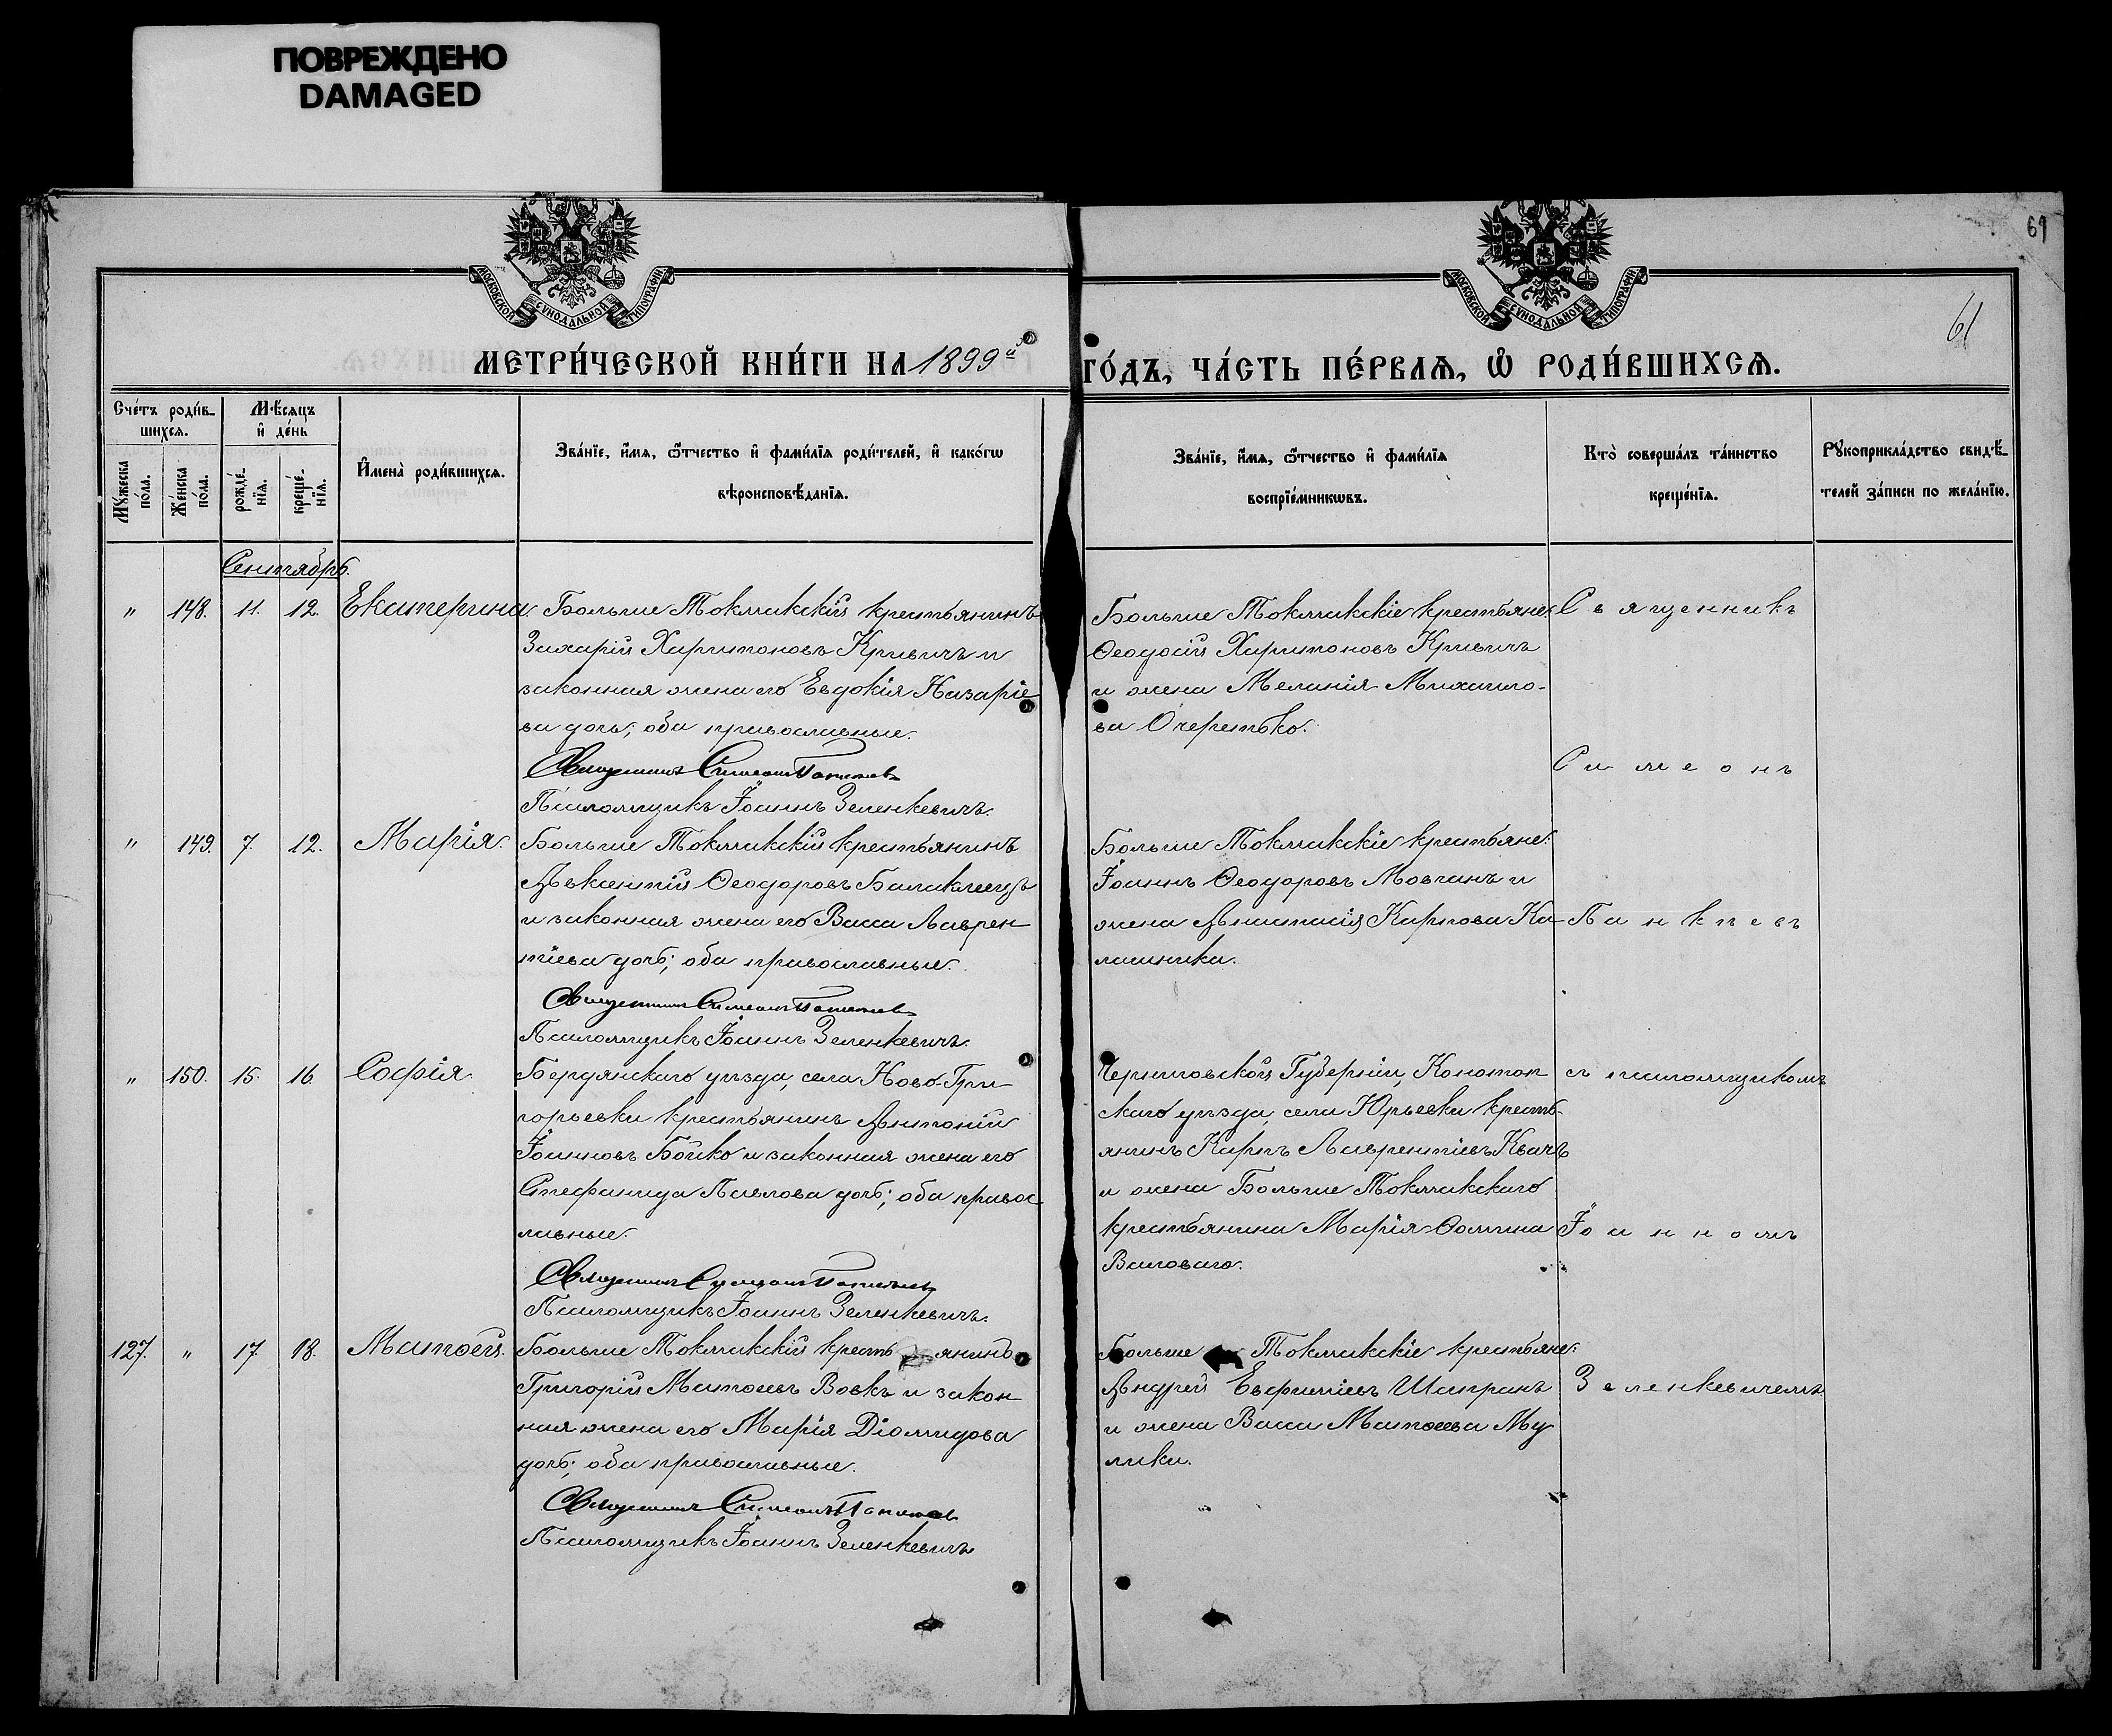 ПОВРЕЖДЕНО
DAMAGED
69
61
МОСКОВСКОЙ СѴНОДАЛЬНОЙ ТИПОГРАФІИ
МОСКОВСКОЙ СѴНОДАЛЬНОЙ ТИПОГРАФІИ
МЕТРИ́ЧЕСКОЙ КНИ́ГИ НА 1899й
ГО́ДЪ, ЧА́СТЬ ПЕ́РВАѦ, Ѽ РОДИ́ВШИХСѦ.
Сче́тъ роди́в-
шихсѧ.
Мѣ́сѧцъ
и҆ де́нь
Мꙋ́жеска
по́ла.
Же́нска
по́ла.
рожде́-
нїѧ.
креще́-
нїѧ.
И҆мена̀ роди́вшихсѧ.
Зва́нїе, и҆́мѧ, ѻ҆́тчество и҆ фами́лїѧ роди́телей, и҆ како́гѡ
вѣроисповѣ́данїѧ.
Зва́нїе, и҆́мѧ, ѻ҆́тчество и҆ фами́лїѧ
воспрїе́мникѡвъ.
Кто̀ соверша́лъ та́инство
креще́нїѧ.
Рꙋкоприкла́дство свидѣ́-
телей за́писи по жела́нїю.
Сентябрь.
" 148. 11. 12. Екатерина.
Больше Токмакскій крестьянинъ
Захарій Харитоновъ Кривичъ и
законная жена его Евдокія Назаріе
ва дочь; оба православные.
Священникъ Симеонъ
Псаломщикъ Іоаннъ Зеленкевичъ.
Больше Токмакскіе крестьяне:
Ѳеодосій Харитоновъ Кривичъ
и жена Меланія Михайло-
ва Очеретько.
Священникъ
Симеонъ
" 149. 7. 12. Марія.
Больше Токмакскій крестьянинъ
Авксентій Ѳеодоровъ Балаклеецъ
и законная жена его Васса Лаврен
тіева дочь; оба православные.
Священникъ Симеонъ
Псаломщикъ Іоаннъ Зеленкевичъ.
Больше Токмакскіе крестьяне:
Іоаннъ Ѳеодоровъ Мовчанъ и
жена Анастасія Карпова Ка-
лашника.
" 150. 15. 16. Софія.
Бердянскаго уѣзда, села Ново-Гри-
горьевки крестьянинъ Антоній
Іоанновъ Бойко и законная жена его
Стефанида Павлова дочь; оба правос
лавные.
Священникъ Симеонъ
Псаломщикъ Іоаннъ Зеленкевичъ.
Черниговской Губерніи, Конотоп
скаго уѣзда, села Юрьевки кресть-
янинъ Карпъ Лаврентіевъ Квачъ
и жена Больше Токмакскаго
крестьянина Марія Ѳомина
съ псаломщикомъ
Іоанномъ
127. " 17. 18. Матѳей.
Больше Токмакскій кресть янинъ
Григорій Матѳеевъ Вовкъ и закон
ная жена его Марія Діомидова
дочь; оба православные.
Священникъ Симеонъ
Псаломщикъ Іоаннъ Зеленкевичъ
Больше Токмакскіе крестьяне:
Андрей Евфиміевъ Шапранъ
и жена Васса Матѳеева Му
лика.
Зеленкевичемъ